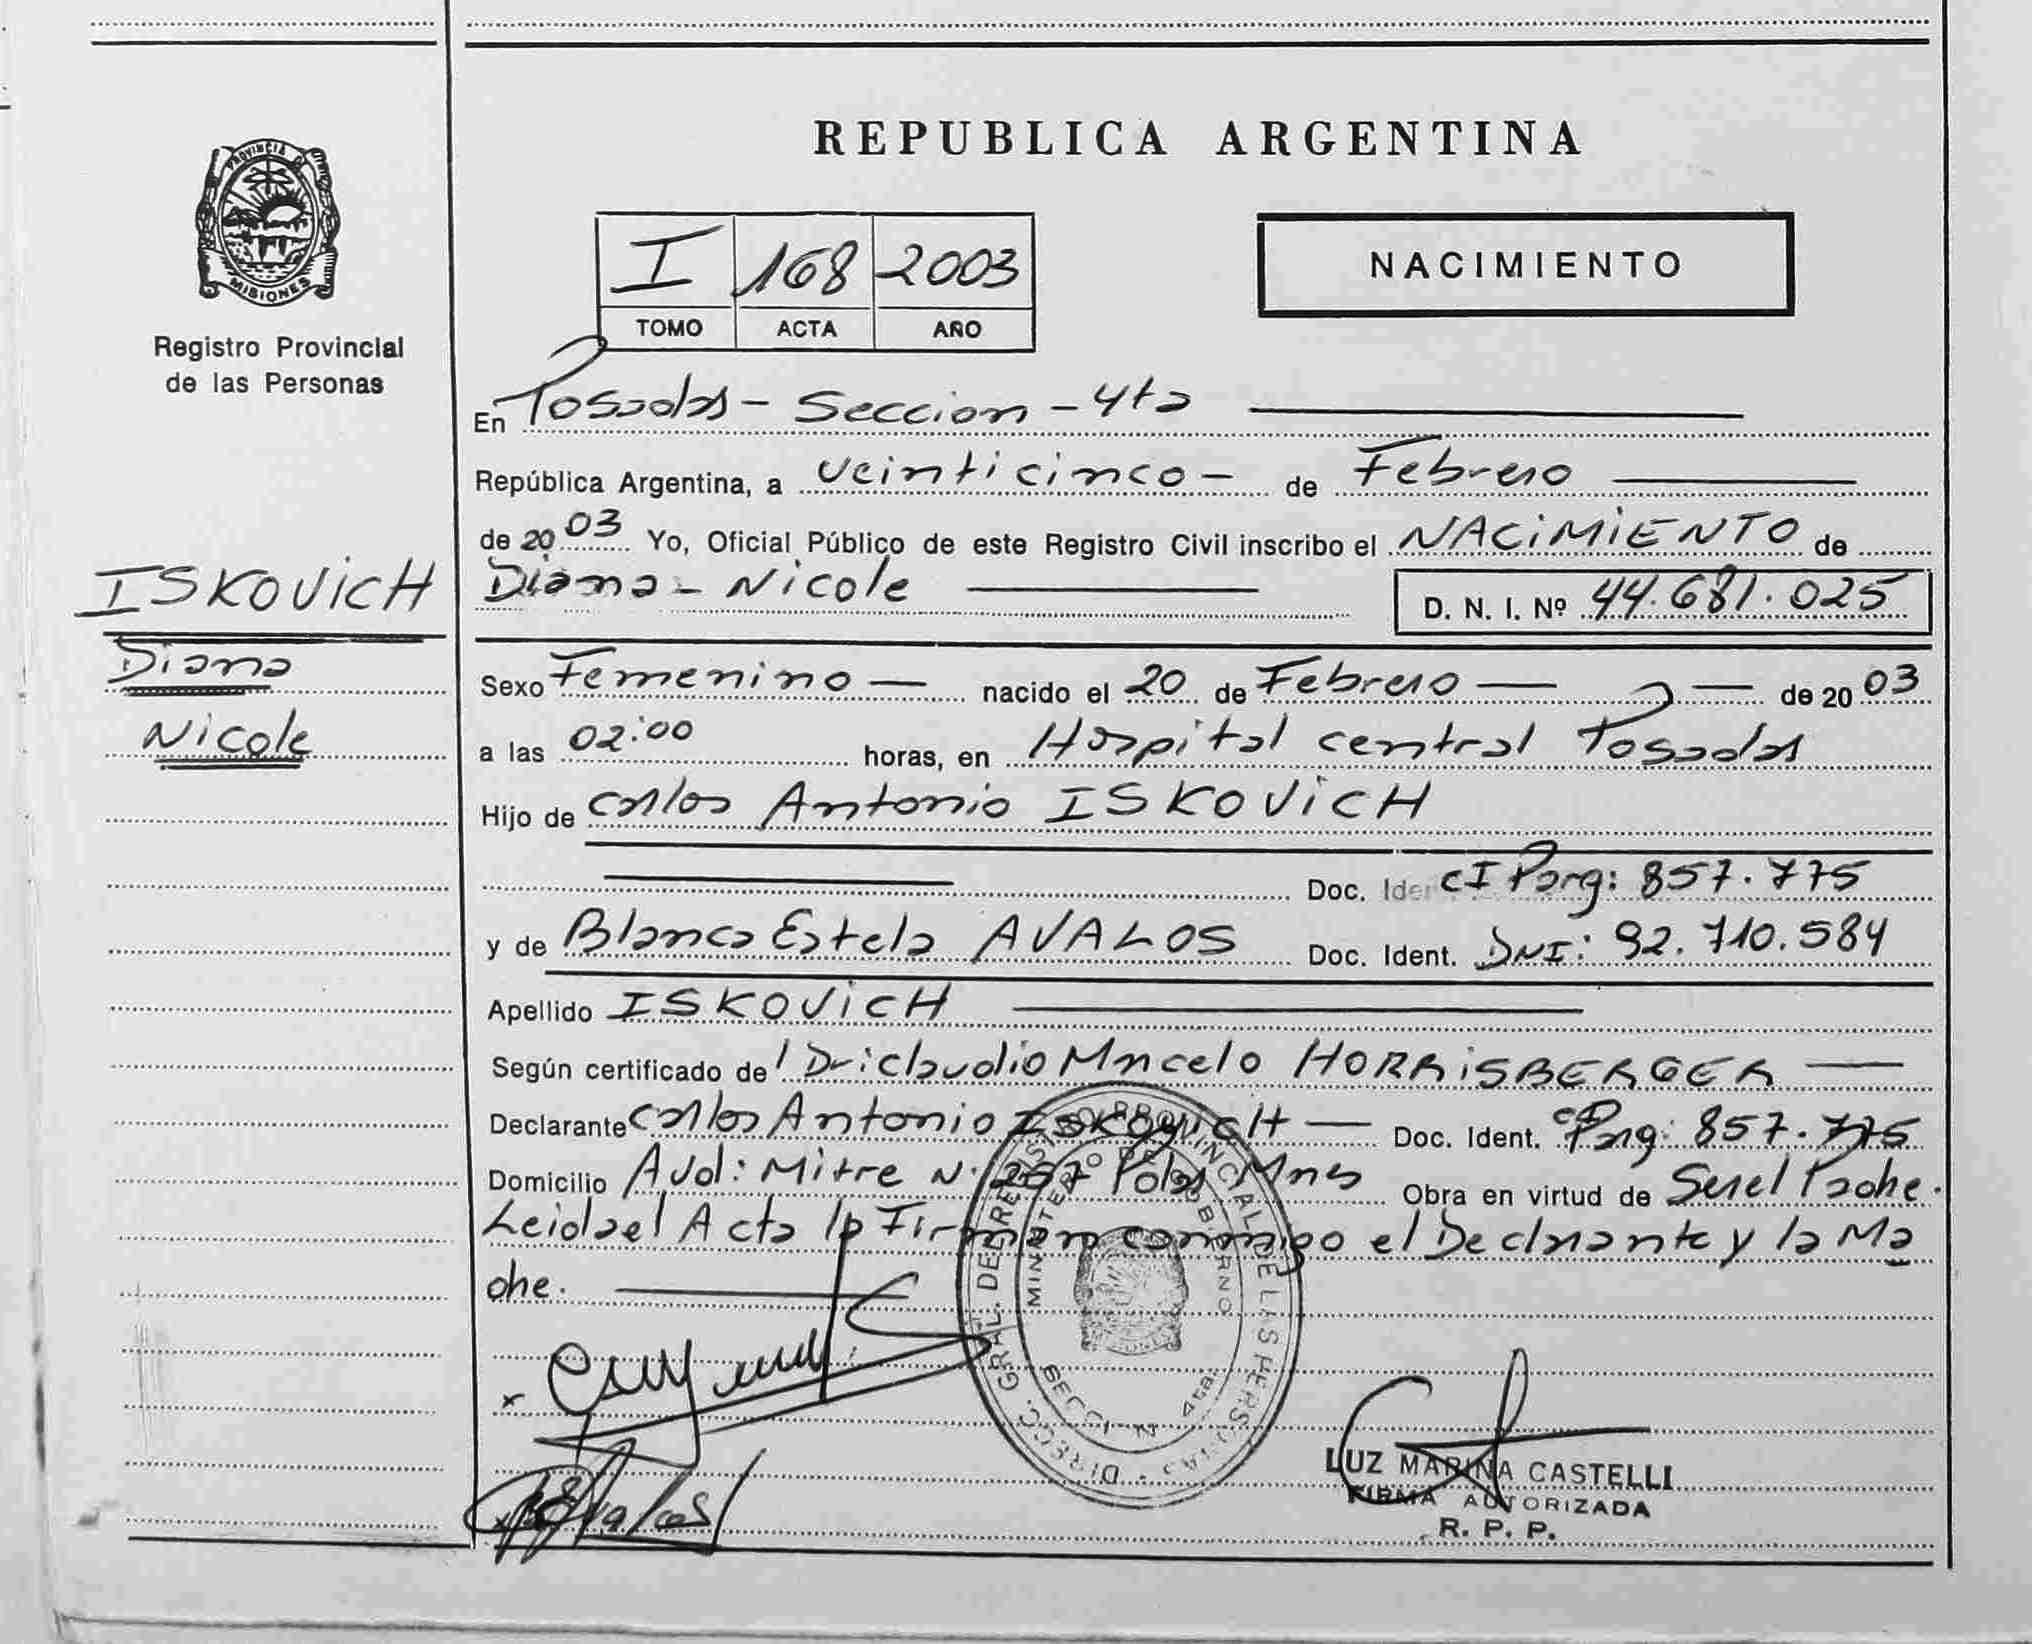 PROVINCIA DE
MISIONES
Registro Provincial
de las Personas
ISKOViCH
Diana
Nicole
REPUBLICA ARGENTINA
I 168 2003
TOMO ACTA AÑO
NACIMIENTO
En Posadas - Seccion - 4ta
República Argentina, a veinticinco - de Febrero
de 2003 Yo, Oficial Público de este Registro Civil inscribo el NACiMiENTO de
Diana - Nicole D. N. I. Nº 44.681.025
Sexo Femenino — nacido el 20 de Febrero — de 2003
a las 02:00 horas, en Hospital central Posadas
Hijo de Carlos Antonio ISKOViCH
Doc. Iden CI Parg: 857.775
y de Blanca Estela AVALOS Doc. Ident. DNI: 92.710.584
Apellido ISKOViCH
Según certificado de Dr: Claudio Marcelo HORRiSBERGER —
Declarante Carlos Antonio ISKOViCH — Doc. Ident. CI Parg: 857.775
Domicilio Avd: Mitre N 257 Pdas Mnes Obra en virtud de Ser el Padre.
Leida el Acta la Firman conmigo el Declarante y la Ma
dre.
DIRECC. GRAL. DEL REGISTRO PROVINCIAL DE LAS PERSONAS
MINISTERIO DE GOBIERNO
SECCION 4ta.
LUZ MARINA CASTELLI
FIRMA AUTORIZADA
R. P. P.